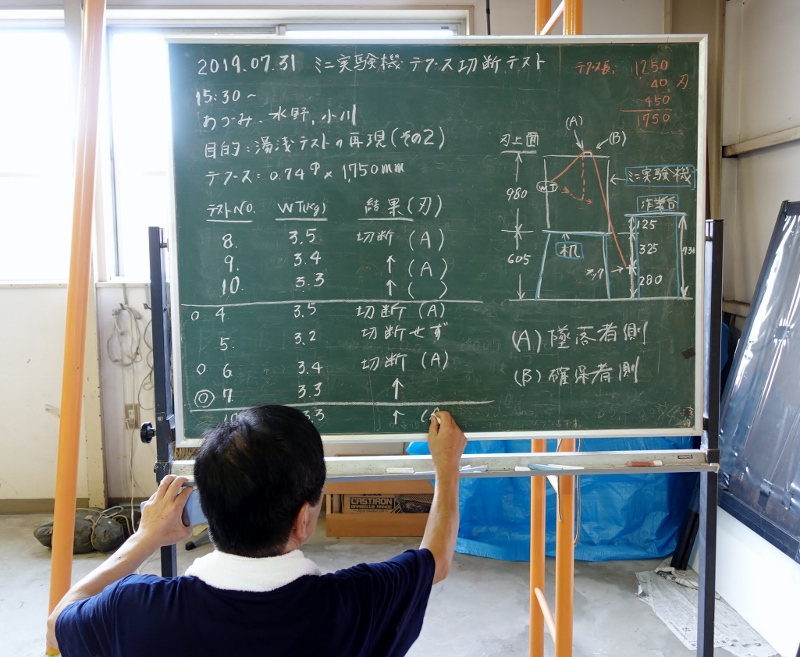 2019.07.31 ミニ実験機 テープス切断テスト
15:30～
あづみ、水野、小川
目的：湯浅テストの再現(その2)
テープス：0.74φ×1,750mm
テストNO. WT(kg) 結果(刃)
8. 3.5 切断 (A)
9. 3.4 ↑ (A)
10. 3.3 ↑ ( )
○ 4 3.5 切断 (A)
5. 3.2 切断せず
○ 6 3.4 切断 (A)
◎ 7. 3.3 ↑
10 3.3 ↑ (A
1250
40 刃
450
1750
(A)
(B)
刃上面
WT
ミニ実験機
980
作業台
125
605
机
325
730
280
(A) 墜落者側
(B) 確保者側
CASTIRON